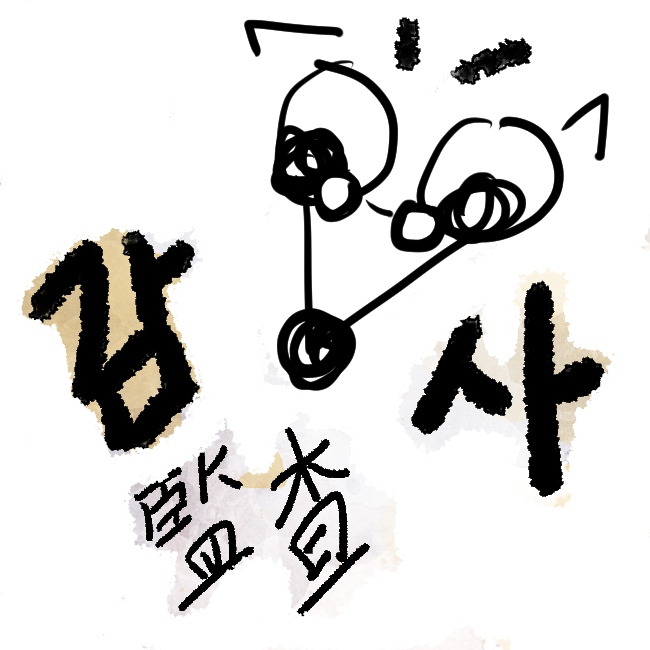 감사
監査